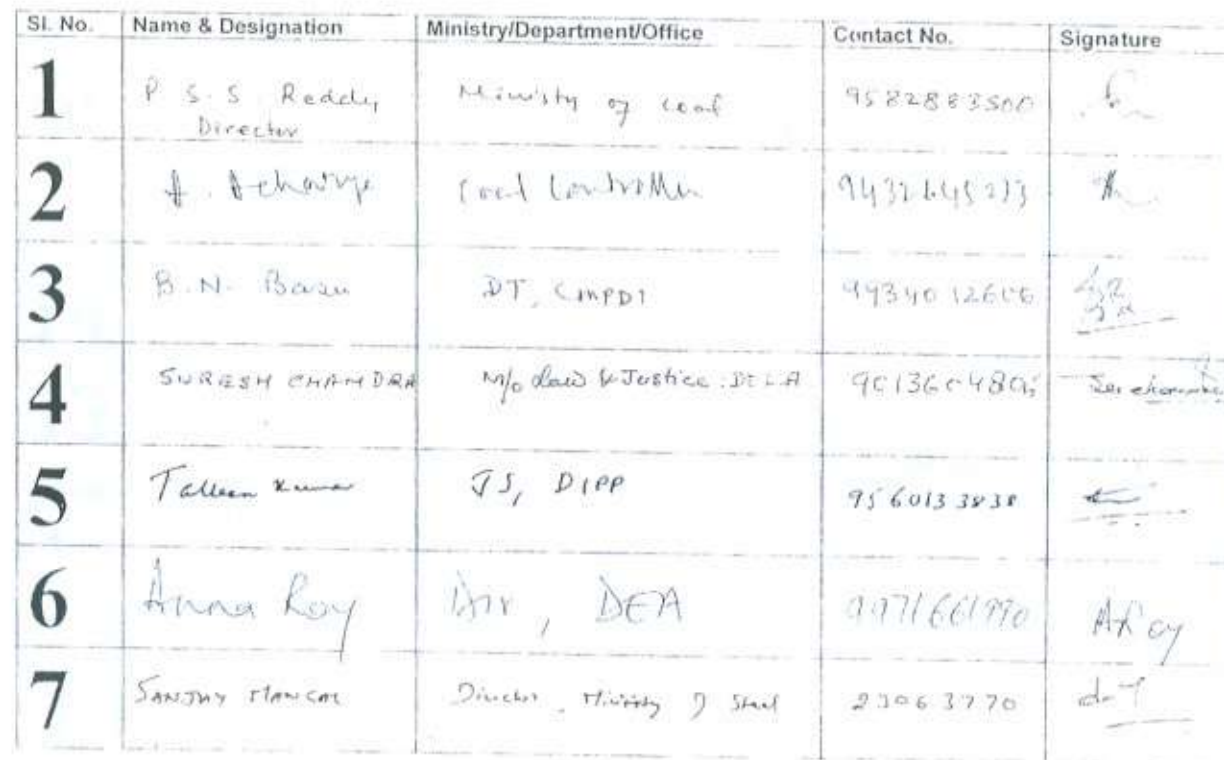 Sl. No. Name & Designation Ministry/Department/Office Contact No. Signature
1 P S. S Reddy Ministry of coal 9582883500
Director
2 A. Acharya Coal Controller
3 B. N. Basu DT, CMPDI
4 SURESH CHANDRA M/o Law & Justice
5 Talleen Kumar JS, DIPP 9560133838
6 Anna Roy Dir, DEA 9971661990 ARoy
7 SANJAY MANGAL Director, Ministry of Steel 23063770